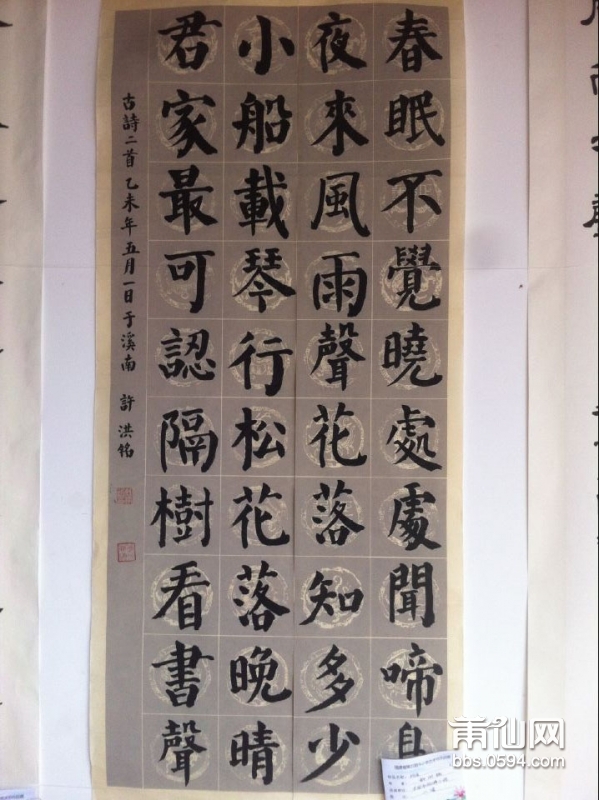 春眠不覺曉處處聞啼鳥
夜來風雨聲花落知多少
小船載琴行松花落晚晴
君家最可認隔樹看書聲
古詩二首 乙未年五月一日于溪南 許洪銘
莆仙网
bbs.0594.com